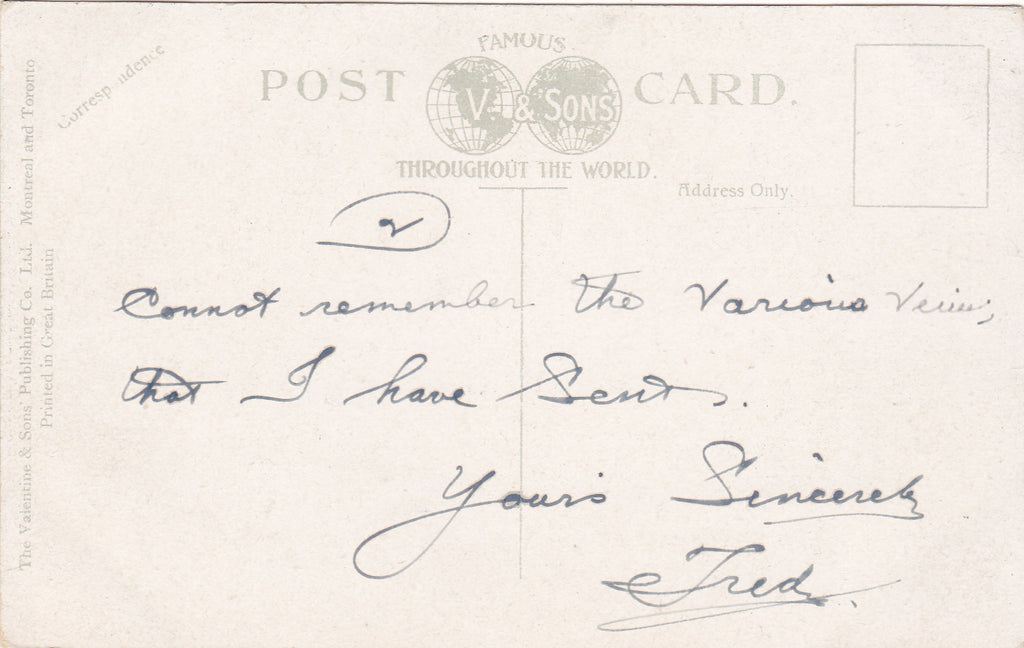 FAMOUS
POST CARD.
V. & SONS
THROUGHOUT THE WORLD.
Correspondence
Address Only.
The Valentine & Sons Publishing Co. Ltd. Montreal and Toronto
Printed in Great Britain
2
Connot remember the various
that I have Sent.
Yours Sincerely
Fred.